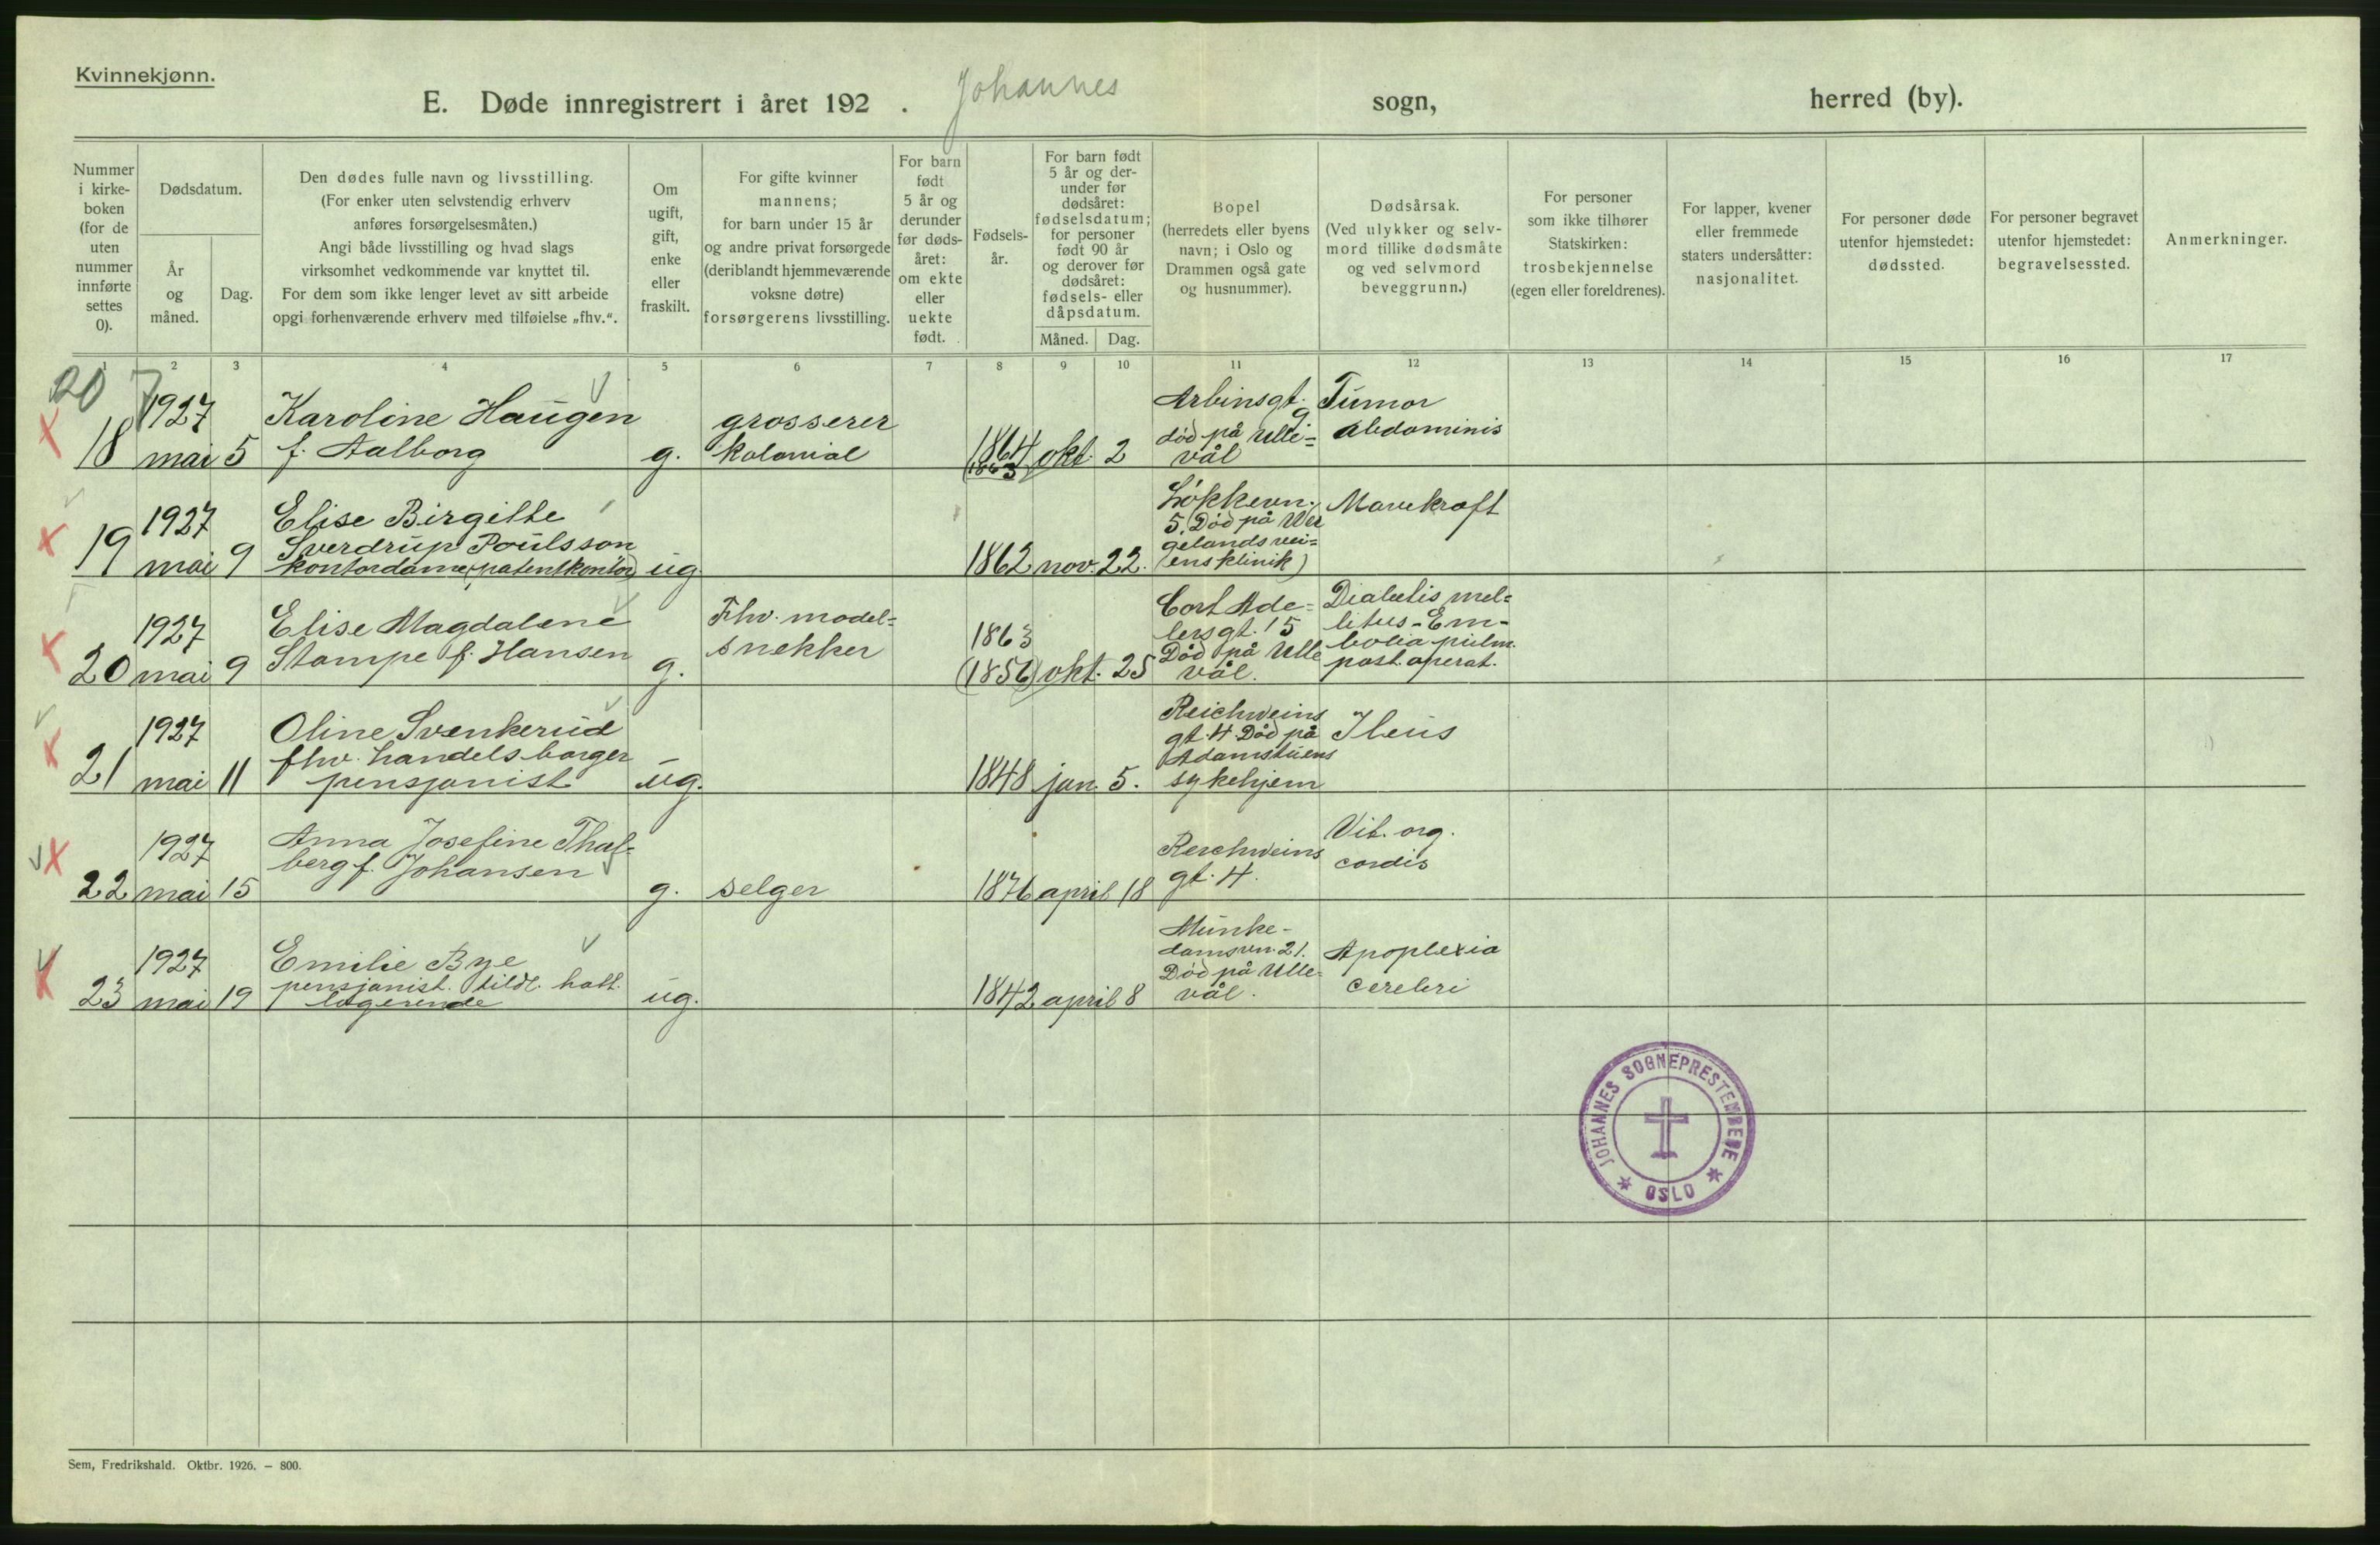 Kvinnekjønn.
E. Døde innregistrert i året 192 . Johannes sogn, herred (by).
Nummer
i kirke-
boken
(for de
uten
nummer
innførte
settes
0).
Dødsdatum.
År
og
måned.
Dag.
Den dødes fulle navn og livsstilling.
(For enker uten selvstendig erhverv
anføres forsørgelsesmåten.)
Angi både livsstilling og hvad slags
virksomhet vedkommende var knyttet til.
For dem som ikke lenger levet av sitt arbeide
opgi forhenværende erhverv med tilføielse „fhv.“.
Om
ugift,
gift,
enke
eller
fraskilt.
For gifte kvinner
mannens;
for barn under 15 år
og andre privat forsørgede
(deriblandt hjemmeværende
voksne døtre)
forsørgerens livsstilling.
For barn
født
5 år og
derunder
før døds-
året:
om ekte
eller
uekte
født.
Fødsels-
år.
For barn født
5 år og der-
under før
dødsåret:
fødselsdatum;
for personer
født 90 år
og derover før
dødsåret:
fødsels- eller
dåpsdatum.
Måned. Dag.
Bopel
(herredets eller byens
navn; i Oslo og
Drammen også gate
og husnummer).
Dødsårsak.
(Ved ulykker og selv-
mord tillike dødsmåte
og ved selvmord
beveggrunn.)
For personer
som ikke tilhører
Statskirken:
trosbekjennelse
(egen eller foreldrenes).
For lapper, kvener
eller fremmede
staters undersåtter:
nasjonalitet.
For personer døde
utenfor hjemstedet:
dødssted.
For personer begravet
utenfor hjemstedet:
begravelsessted.
Anmerkninger.
1 2 3 4 5 6 7 8 9 10 11 12 13 14 15 16 17
20 7
18
1927
mai 5
Karoline Haugen
f. Aalborg
g.
grosserer
kolonial
1864
(1863)
okt. 2
Arbinsgt.
9
død på Ulle=
vål
Tumor
abdominis
19
1927
mai 9
Elise Birgitte
Sverdrup Poulsson
kontordame (patentkontor)
ug.
1862 nov. 22.
Løkkevn.
5. Død på Wer
gelandsvei=
ens klinik)
Mavekræft
20
1927
mai 9
Elise Magdalene
Stampe f. Hansen
g.
Fhv. model=
snekker
1863
(1856) okt. 25
Cort Ade=
lersgt. 15
Død på Ulle
vål.
Diabetis mel=
litus - Em-
bolia pulm.
post. operat.
21
1927
mai 11
Oline Svenkerud
fhv. handelsborger
pensjonist
ug.
1848 jan. 5.
Reichweins
gt. 4 Død på
Adamstuens
sykehjem
Ileus
22
1927
mai 15
Anna Josefine Thal-
berg f. Johansen
g. selger
1876 april 18
Reichweins
gt. 4.
Vit. org.
cordis
23
1927
mai 19
Emilie Bye
pensjonist. tidl. hatt
ug.
1842 april 8
Munke-
damsvn. 21.
Død på Ulle-
vål.
Apoplexia
cerebri
JOHANNES SOGNEPRESTEMBEDE
OSLO
Sem, Fredrikshald. Oktbr. 1926. – 800.